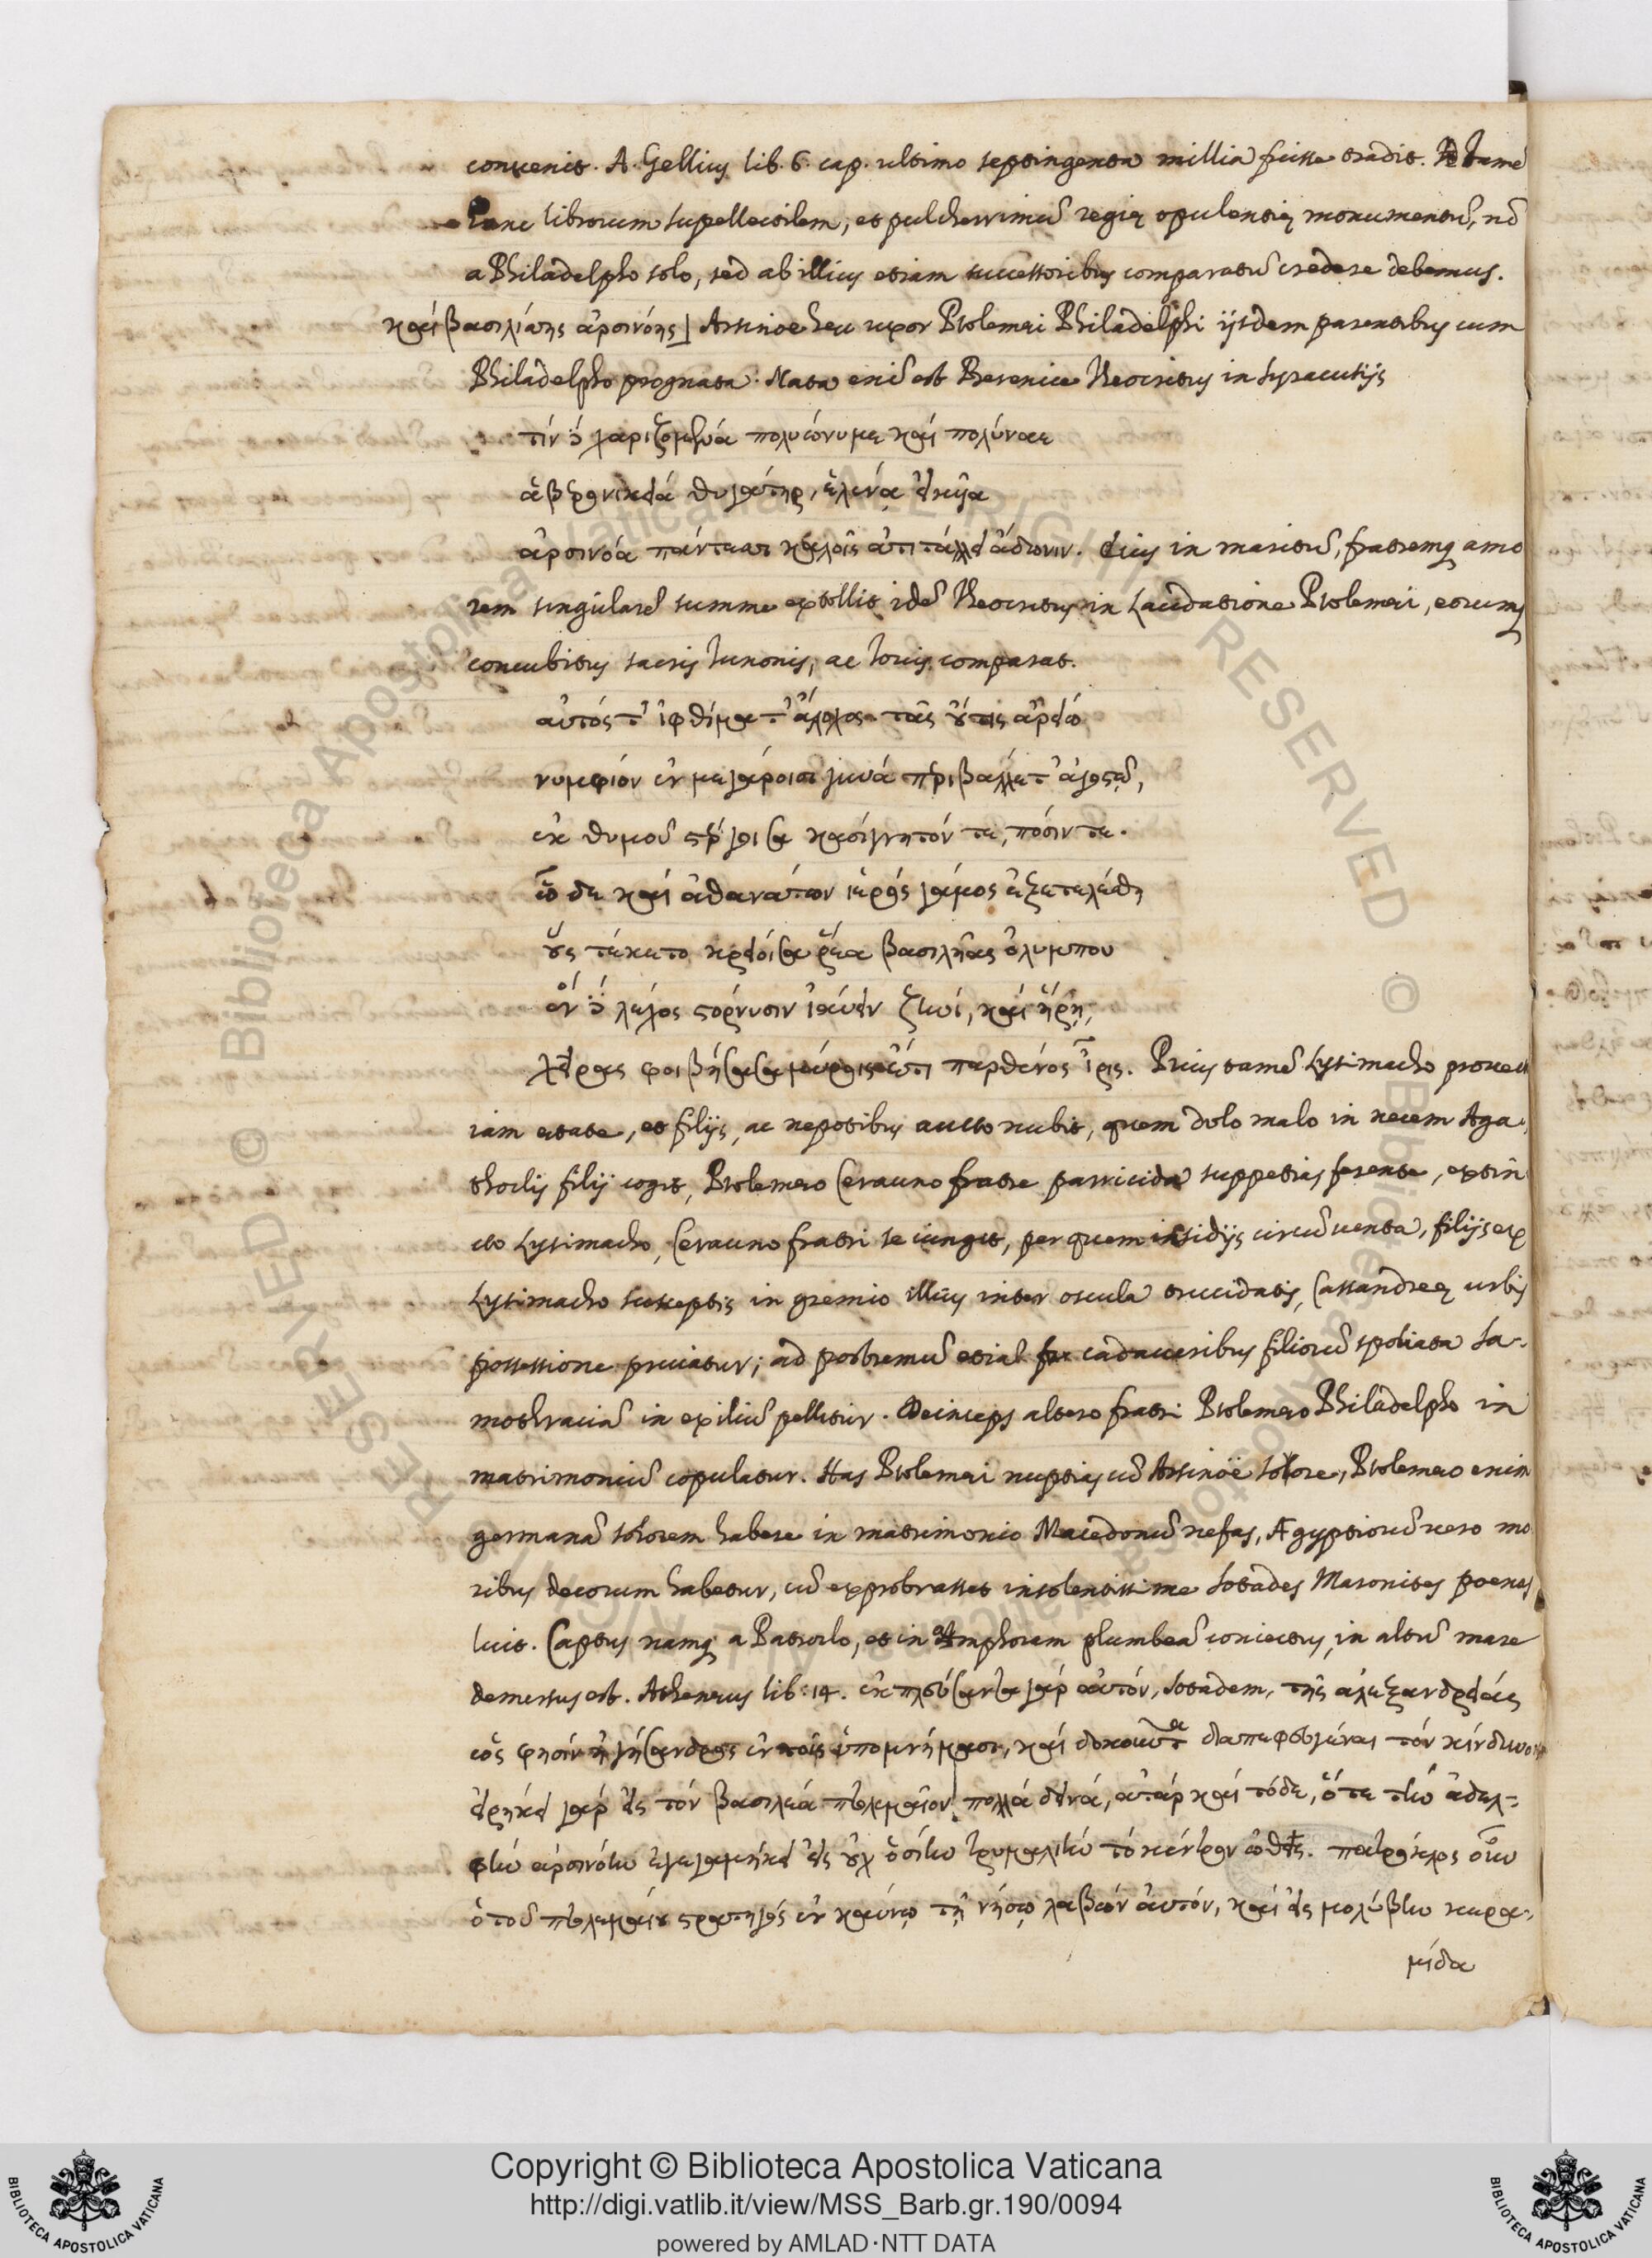 conuenit. A. Gellius lib. 6. cap. ultimo septingenta millia fuisse tradit. tamē
hanc librorum supellectilem, et pulcherrimū regię opulentię monumentū, nō
a Philadelpho solo, sed ab illius etiam successoribus comparatū credere debemus.
καὶ βασιλίσσης ἀρσινόης] Arsinoe haec uxor Ptolemaei Philadelphi ijsdem parentibus cum
Philadelpho prognata. Nata enī est Berenice Theocritus in Syracusijs
τὶν δὲ χαριζομένα πολυώνυμε καὶ πολύναε
ἁ βερενικεία θυγάτηρ, ἑλένᾳ εἰκυῖα
ἀρσινόα πάντεσσι καλοῖς ἀτιτάλλει ἄδωνιν. Eius in maritū, fratremq amo
rem singularē summe extollit idē Theocritus in Laudatione Ptolemaei, eorumq
concubitus sacris Iunonis, ac Iouis comparat.
αὐτός τ' ἰφθίμα τ' ἄλοχος. τᾶς οὔτις ἀρείω
νυμφίον ἐν μεγάροισι γυνὰ περιβάλλετ' ἀγοστῷ,
ἐκ θυμοῦ στέργοισα κασίγνητόν τε, πόσιν τε.
ὧδε καὶ ἀθανάτων ἱερὸς γάμος ἐξετελέσθη
οὓς τέκετο κρείοισα ῥέα βασιλῆας ὀλύμπου
ἓν δὲ λέχος στόρνυσιν ἰαύειν ζηνὶ, καὶ ἥρῃ,
χεῖρας φοιβήσασα μύροις ἔτι παρθένος ἶρις. Prius tamē Lysimacho prouect
iam etate, et filijs, ac nepotibus aucto nubit, quem dolo malo in necem Aga-
thoclis filij cogit, Ptolemaeo Cerauno fratre parricida suppetias ferente, extin
cto Lysimacho, Cerauno fratri se iungit, per quem insidijs circūuenta, filijs ex
Lysimacho susceptis in gremio illius inter oscula trucidatis, Cassandreę urbis
possessione priuatur; ad postremū etiā cadaueribus filiorū spoliata Sa-
mothraciā in exiliū pellitur. Deinceps altero fratri Ptolemaeo Philadelpho in
matrimoniū copulatur. Has Ptolemaei nuptias cū Arsinoë sorore, Ptolemaeo enim
germanā sororem habere in matrimonio Macedonū nefas, Ægyptiorū uero mo
ribus decorum habetur, cū exprobrasset insolentissime Sotades Maronites poenas
luit. Captus namq a Patroclo, et in amphoram plumbeā coniectus, in altū mare
demersus est. Athenaeus lib: 14. ἐκπλεύσαντα γὰρ αὐτόν, Sotadem, τῆς ἀλεξανδρείας
ὥς φησὶν ἡγήσανδρος ἐν τοῖς ὑπομνήμασι, καὶ δοκοῦντα διαπεφευγέναι τὸν κίνδυνον
εἰρήκει γὰρ εἰς τὸν βασιλέα πτολεμαῖον πολλὰ δεινά, ἀτὰρ καὶ τόδε, ὅτε τὴν ἀδελ-
φὴν ἀρσινόην ἐγεγαμήκει εἰς οὐχ ὁσίην τρυμαλιὴν τὸ κέντρον ὠθεῖς. πάτροκλος οὖν
ὁ τοῦ πτολεμαίου στρατηγὸς ἐν καύνῳ τῇ νήσῳ λαβὼν αὐτόν, καὶ εἰς μολύβην κερα-
μίδα
© Biblioteca Apostolica Vaticana ALL RIGHTS RESERVED © Biblioteca Apostolica Vaticana ALL RIGHTS RESERVED
Copyright © Biblioteca Apostolica Vaticana
http://digi.vatlib.it/view/MSS_Barb.gr.190/0094
powered by AMLAD·NTT DATA
BIBLIOTECA APOSTOLICA VATICANA
BIBLIOTECA APOSTOLICA VATICANA